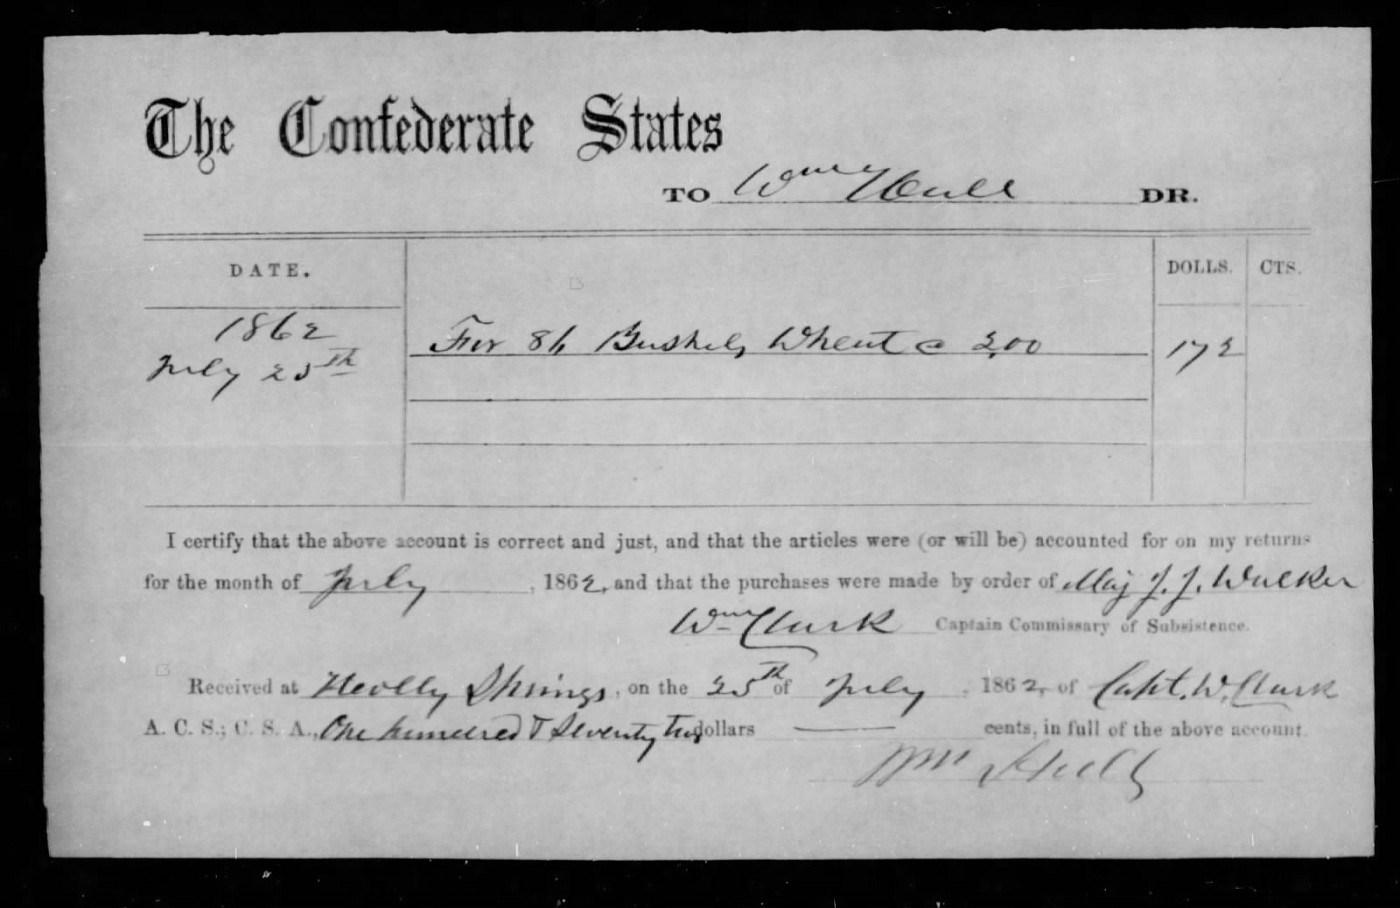 The Confederate States
TO Wm Hull DR.
DATE. DOLLS. CTS.
1862
July 25th For 86 Bushels Wheat @ 2,00 172
I certify that the above account is correct and just, and that the articles were (or will be) accounted for on my returns
for the month of July, 1862, and that the purchases were made by order of Maj J. J. Walker
Wm Clark Captain Commissary of Subsistence.
Received at Holly Springs, on the 25th of July, 1862, of Capt. W. Clark
A. C. S.; C. S. A., One hundred & Seventy two dollars —— cents, in full of the above account.
Wm Hull